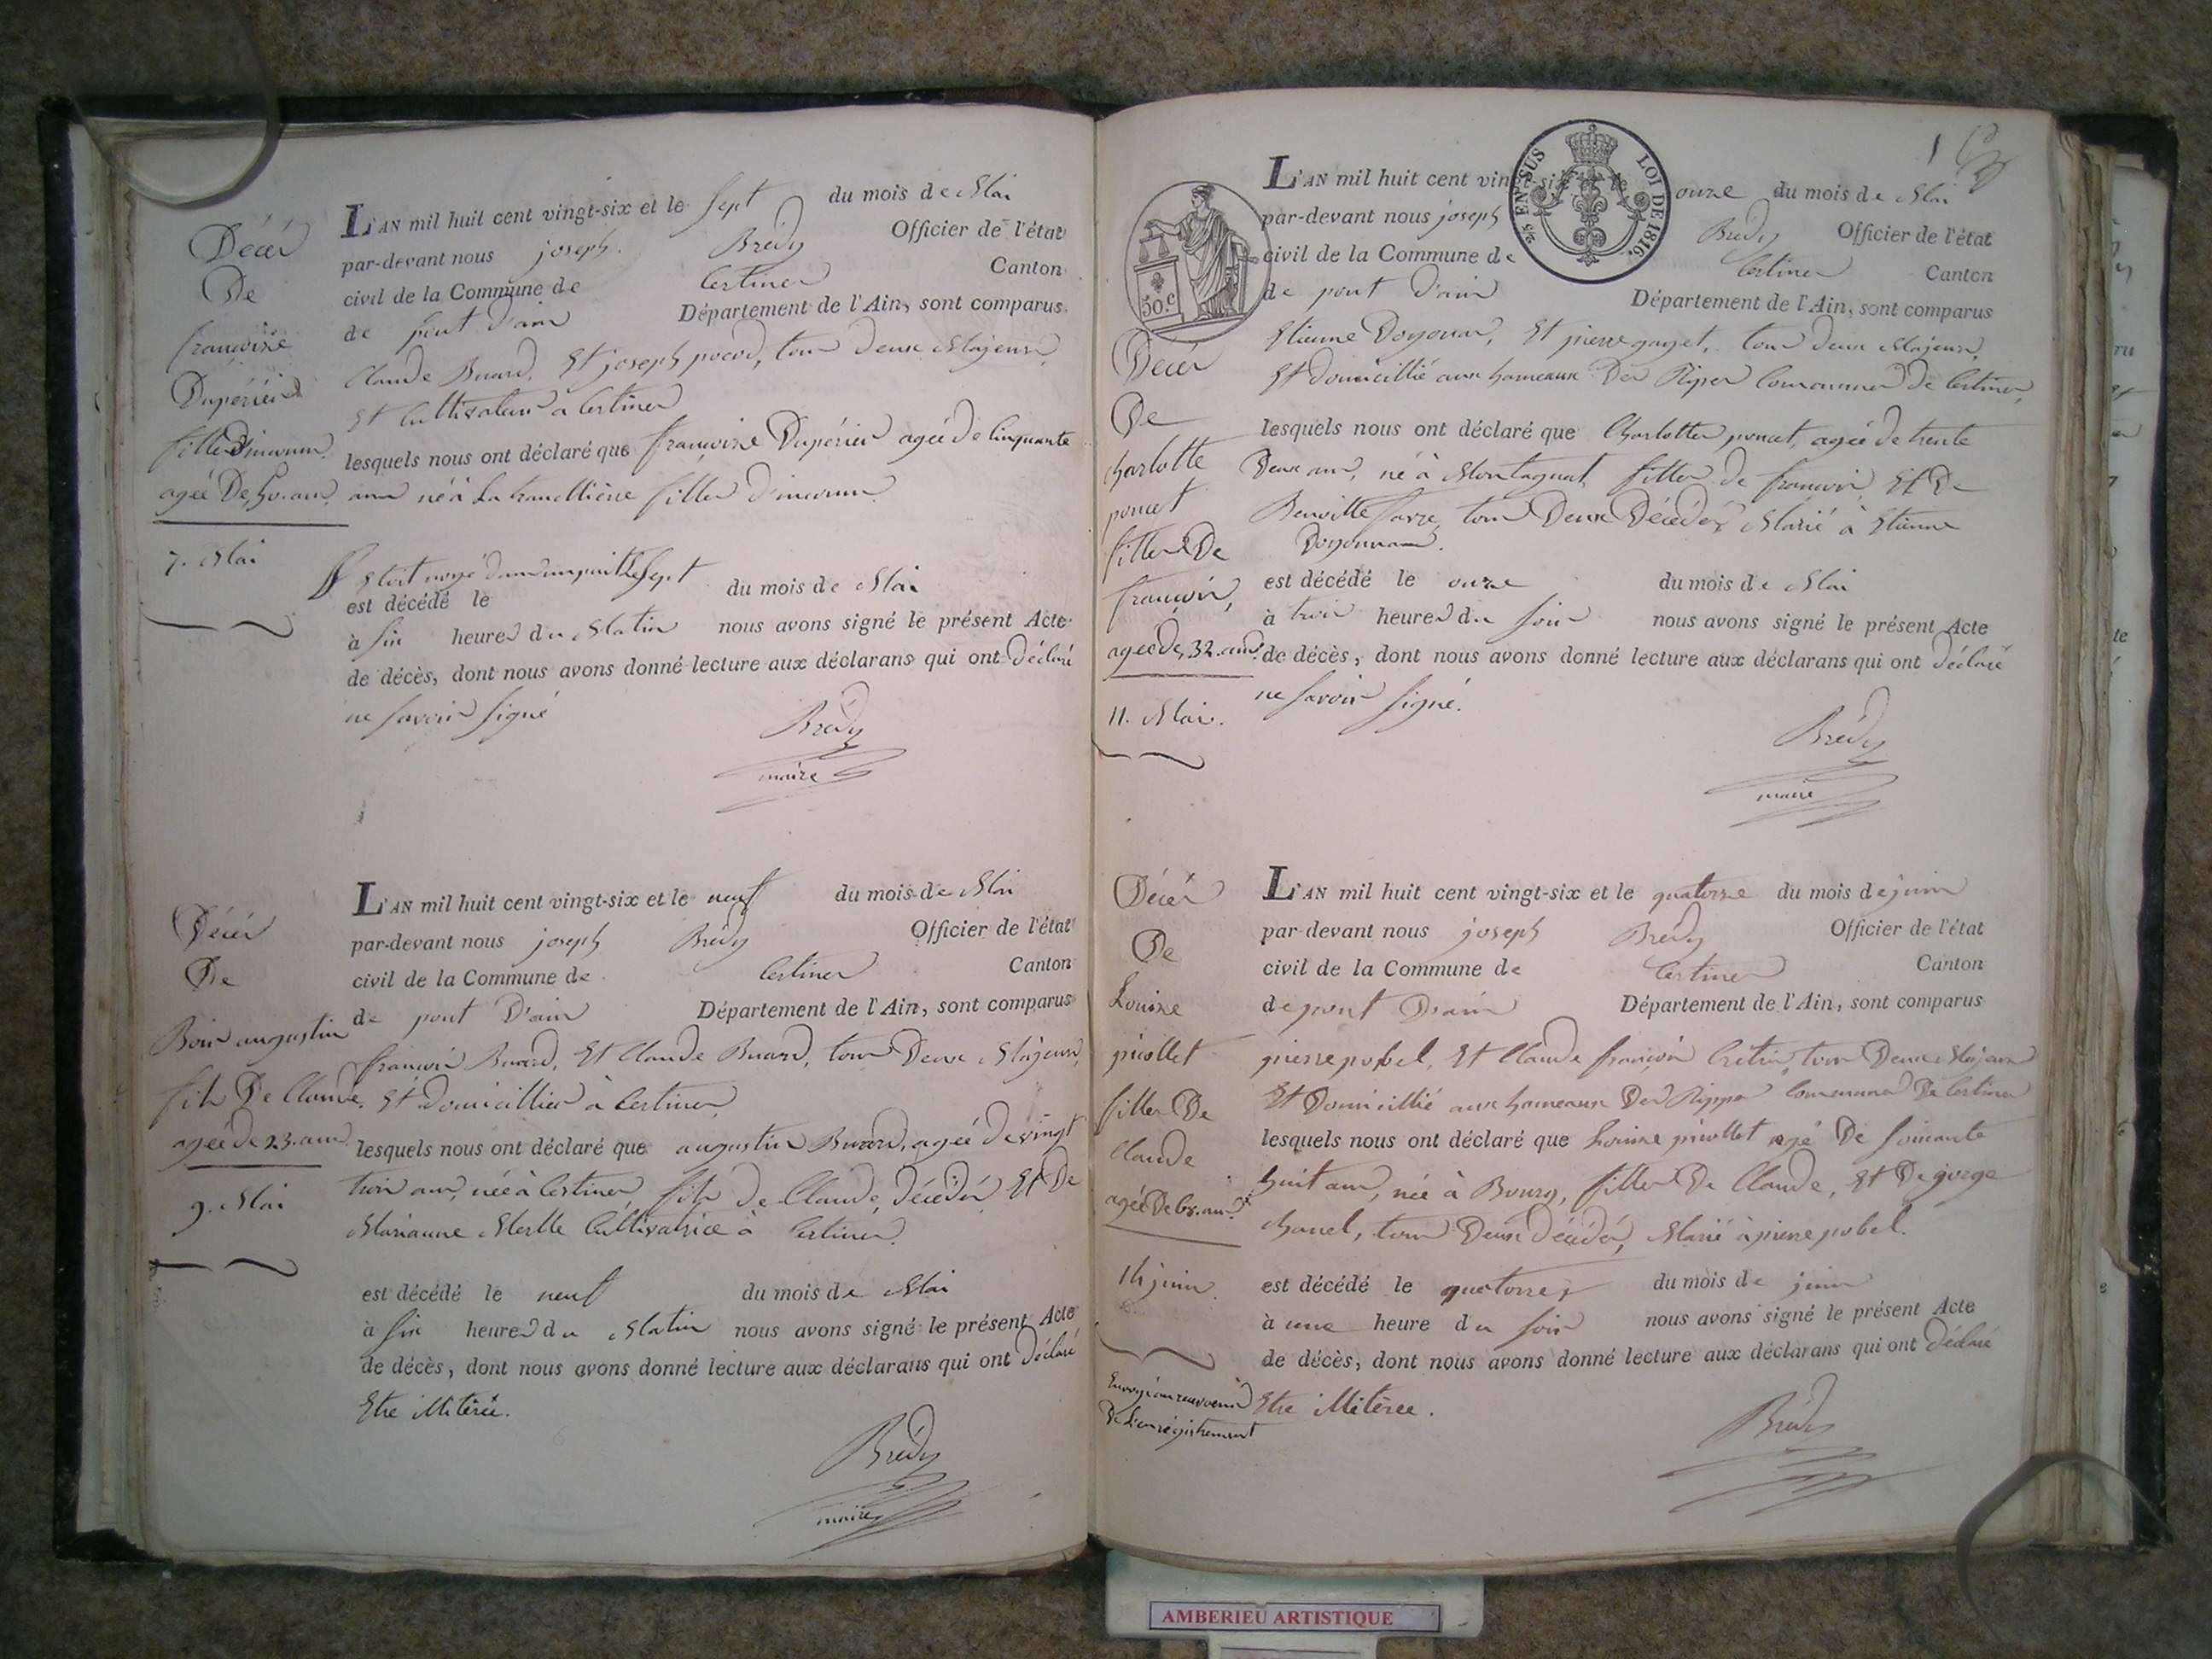 Décès
De
françoise
Dupérier
fille D'inconnu
agée De 50. ans
7. Mai
L'AN mil huit cent vingt-six et le sept du mois de Mai
par-devant nous joseph Brédy Officier de l'état
civil de la Commune de Certines Canton
de pont d'ain Département de l'Ain, sont comparus
Claude Buard, Et joseph pocod, tous deux Majeurs,
Et Cultivateurs a Certines
lesquels nous ont déclaré que françoise Dupérier agée de Cinquante
ans né à La tranclière filler d'inconnu
S'Etoit noyé dans un puit le sept
est décédé le du mois de Mai
à six heures du Matin nous avons signé le présent Acte
de décès, dont nous avons donné lecture aux déclarans qui ont Déclaré
ne savoir signé
Brédy
maire
Décès
De
Buis augustin
fils De Claude,
agée de 23. ans
9. Mai
L'AN mil huit cent vingt-six et le neuf du mois de Mai
par-devant nous joseph Brédy Officier de l'état
civil de la Commune de Certines Canton
de pont D'ain Département de l'Ain, sont comparus
françois Buard, Et Claude Buard, tous Deux Majeurs,
Et domicillier à Certines,
lesquels nous ont déclaré que augustin Buard, agée de vingt
trois ans, née à Certines, fils de Claude, décédé, Et De
Marianne Merlle Cultivatrice à Certines.
est décédé le neuf du mois de Mai
à six heures du Matin nous avons signé le présent Acte
de décès, dont nous avons donné lecture aux déclarans qui ont Déclaré
Etre illitérée.
Brédy
maire
50.c
EN SUS
LOI DE 1816
Décès
De
charlotte
poncet
filler De
françois,
agée de, 32. ans
11. Mai.
L'AN mil huit cent vingt-six et le onze du mois de Mai
par-devant nous joseph Brédy Officier de l'état
civil de la Commune de Certines Canton
de pont D'ain Département de l'Ain, sont comparus
Etienne Doyonnax, Et pierre gayet, tous deux Majeurs,
Et domicillié aux hameaux Des Rippes Commune de Certines,
lesquels nous ont déclaré que Charlotte poncet, agée de trente
Deux ans, né à Montagnat, filler de françois, Et De
tous Deux Décédés, Marié à Etienne
Doyonnax.
est décédé le onze du mois de Mai
à trois heures du soir nous avons signé le présent Acte
de décès, dont nous avons donné lecture aux déclarans qui ont Déclaré
ne savoir signé.
Brédy
maire
Décès
De
Louise
picollet
filler De
Claude
agée De 68. ans
14 juin
Envoyé au receveur
De L'enrégistrement
L'AN mil huit cent vingt-six et le quatorze du mois de juin
par-devant nous joseph Brédy Officier de l'état
civil de la Commune de Certines Canton
de pont D'ain Département de l'Ain, sont comparus
pierre pobel, Et Claude françois Crétin, tous Deux Majeurs
Et Domicillié aux hameaux Des Rippes Commune De Certines
lesquels nous ont déclaré que Louise picollet agé De soixante
huit ans, née à Bourg, filler De Claude, Et De
chanel, tous Deux décédés, Marié à pierre pobel.
est décédé le quatorze du mois de juin
à une heure du soir nous avons signé le présent Acte
de décès, dont nous avons donné lecture aux déclarans qui ont déclaré
Etre illitérée.
Brédy
AMBERIEU ARTISTIQUE